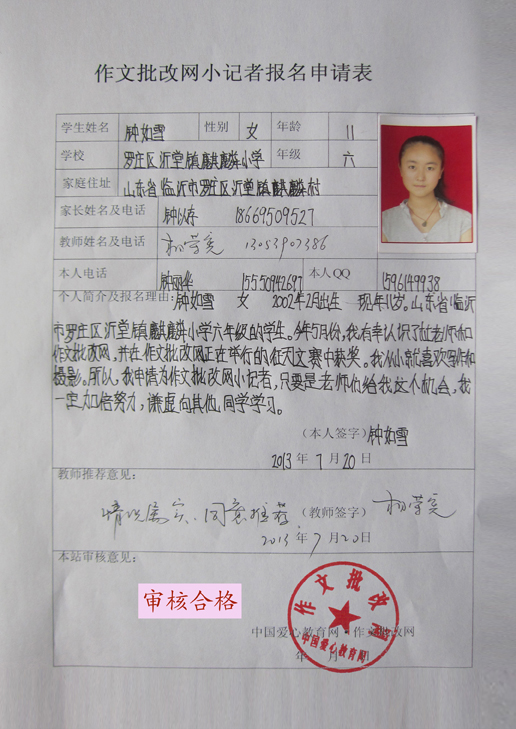 作文批改网小记者报名申请表
学生姓名 钟如雪 性别 女 年龄 11
学校 罗庄区沂堂镇麒麟小学 年级 六
家庭住址 山东省临沂市罗庄区沂堂镇麒麟村
家长姓名及电话 18669509527
教师姓名及电话 13053907386
本人电话 15550942697 本人QQ 1596149938
个人简介及报名理由：钟如雪 女 2002年2月出生 现年11岁。山东省临沂
市罗庄区沂堂镇麒麟小学六年级的学生。今年5月份，我有幸认识了杜老师和
作文批改网，并在作文批改网正在举行的征文大赛中获奖。我从小就喜欢写作和
摄影。所以，我申请为作文批改网小记者，只要是老师们给我这个机会，我
一定加倍努力，谦虚向其他同学学习。
（本人签字）钟如雪
2013年7月20日
教师推荐意见：
情况属实，同意推荐 （教师签字）
2013年7月20日
本站审核意见：
审核合格
作文批改网
中国爱心教育网
中国爱心教育网 作文批改网
年 月 日